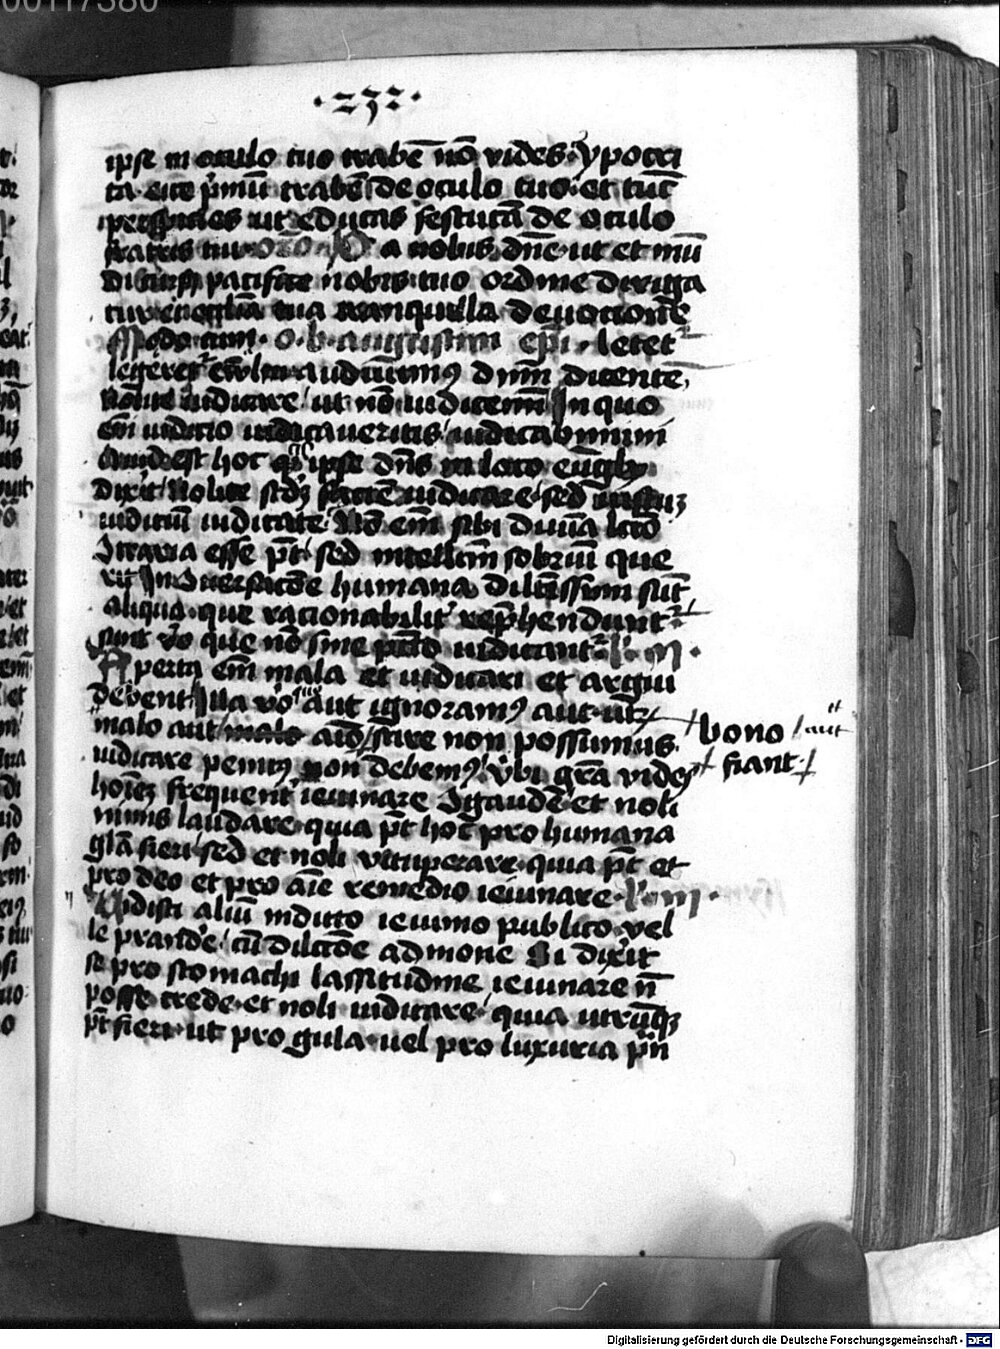 00117380
·232·
ipse in oculo tuo trabē nō vides· ypocri
ta eice p̄mū trabē de oculo tuo· et tūc
perspicies ut educas festucā de oculo
fratris tui· Orō D a nobis dn̄e ut et mū
di cursꝰ pacifice nobis tuo ordine diriga
tur et ecclīa tua tranquilla deuotione
Omelia b· augustini ep̄i · letet
legeret Audiuimꝰ dn̄m dicentē
Nolite iudicare ut nō iudicemī In quo
em̄ iudicio iudicaueritis iudicabimini
Quid est hoc q ipse dn̄s in loco
dixit Nolite scd̄ꝫ faciē iudicare sed iustuꝫ
iudiciū iudicate Nō em̄ sibi diuīa lcō
9traria esse p̄t sed intellcm̄ sobriū que
rit In 9uersacōe humana sūt
aliqua que racionabilit̛ rep̄hendunt᷑
sunt v̊o que nō sine pcc̄o iudicant᷑ L· ij·
Aperta em̄ mala et iudicari et argui
debent Illa v̊o aut ignoramꝰ aut utꝫ
malo aut malo aīo scire non possumus
bono / aut
et
fiant
iudicare penitꝰ non debemꝰ vbi grā vides
hoīeꝫ frequent̛ ieiunare 9gaudē et noli
nimis laudare quia p̄t hoc pro humana
glā fieri sed et noli vituperare quia p̄t et
pro deo et pro aīe remedio ieiunare L· iij·
Vidisti aliū indicto ieiunio publico vel
le prandē cū dilcōe admone Si dixit
se pro stomachi lassitudine ieiunare n̄
posse crede et noli iudicare quia utrūqꝫ
p̄t fieri ut pro gula uel pro luxuria p̄n
Digitalisierung gefördert durch die Deutsche Forschungsgemeinschaft - DFG